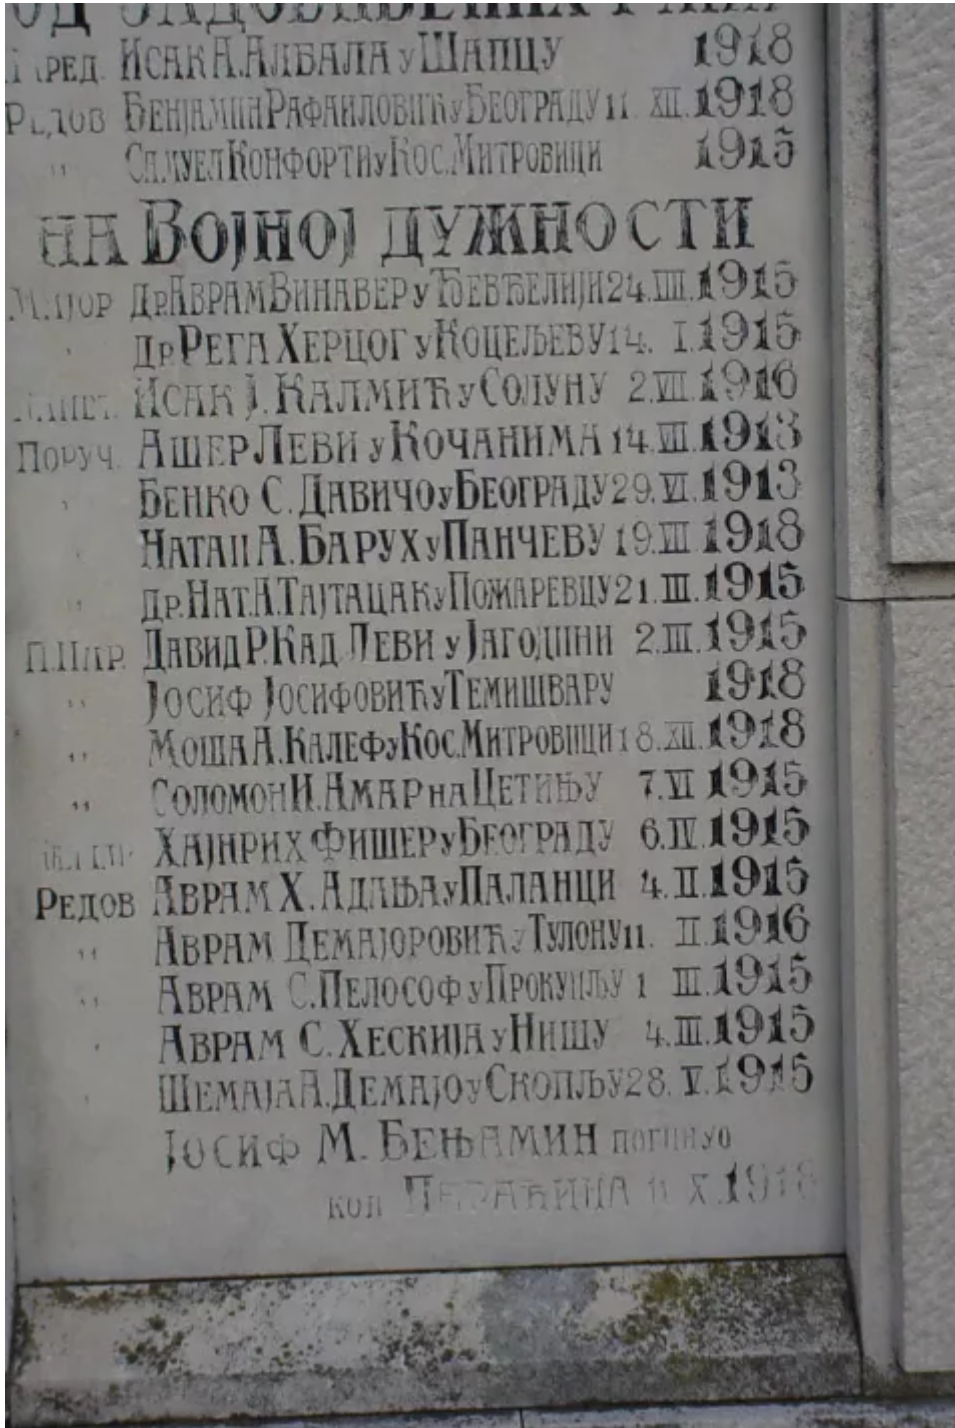 ОД ЗАДОБИВЕНИХ РАНА
ИСАК А. АЛБАЛА У ШАПЦУ 1918
РЕДОВ БЕНЈАМИН РАФАИЛОВИЋ У БЕОГРАДУ 11. XII. 1918
" САМУЕЛ КОНФОРТИ У КОС. МИТРОВИЦИ 1915
НА ВОЈНОЈ ДУЖНОСТИ
МАЈОР ДР. АВРАМ ВИНАВЕР У ЂЕВЂЕЛИЈИ 24. III. 1915
" ДР РЕГА ХЕРЦОГ У КОЦЕЉЕВУ 14. I. 1915
ИСАК Ј. КАЛМИЋ У СОЛУНУ 2. VII. 1916
ПОРУЧ. АШЕР ЛЕВИ У КОЧАНИМА 14. VII. 1913
" БЕНКО С. ДАВИЧО У БЕОГРАДУ 29. VI. 1913
" НАТАН А. БАРУХ У ПАНЧЕВУ 19. XII. 1918
" ДР. НАТ. А. ТАЈТАЦАК У ПОЖАРЕВЦУ 21. III. 1915
ДАВИД Р. КАД ЛЕВИ У ЈАГОДИНИ 2. III. 1915
" ЈОСИФ ЈОСИФОВИЋ У ТЕМИШВАРУ 1918
" МОША А. КАЛЕФ У КОС. МИТРОВИЦИ 18. XII. 1918
" СОЛОМОН И. АМАР НА ЦЕТИЊУ 7. VI 1915
ХАЈНРИХ ФИШЕР У БЕОГРАДУ 6. IV. 1915
РЕДОВ АВРАМ Х. АДАЊА У ПАЛАНЦИ 4. II. 1915
" АВРАМ ДЕМАЈОРОВИЋ У ТУЛОНУ 11. II. 1916
" АВРАМ С. ПЕЛОСОФ У ПРОКУПЉУ 1 III. 1915
" АВРАМ С. ХЕСКИЈА У НИШУ 4. III. 1915
" ШЕМАЈА А. ДЕМАЈО У СКОПЉУ 28. V. 1915
ЈОСИФ М. БЕЊАМИН ПОГИНУО
КОД ПАРАЋИНА 11 X. 1918